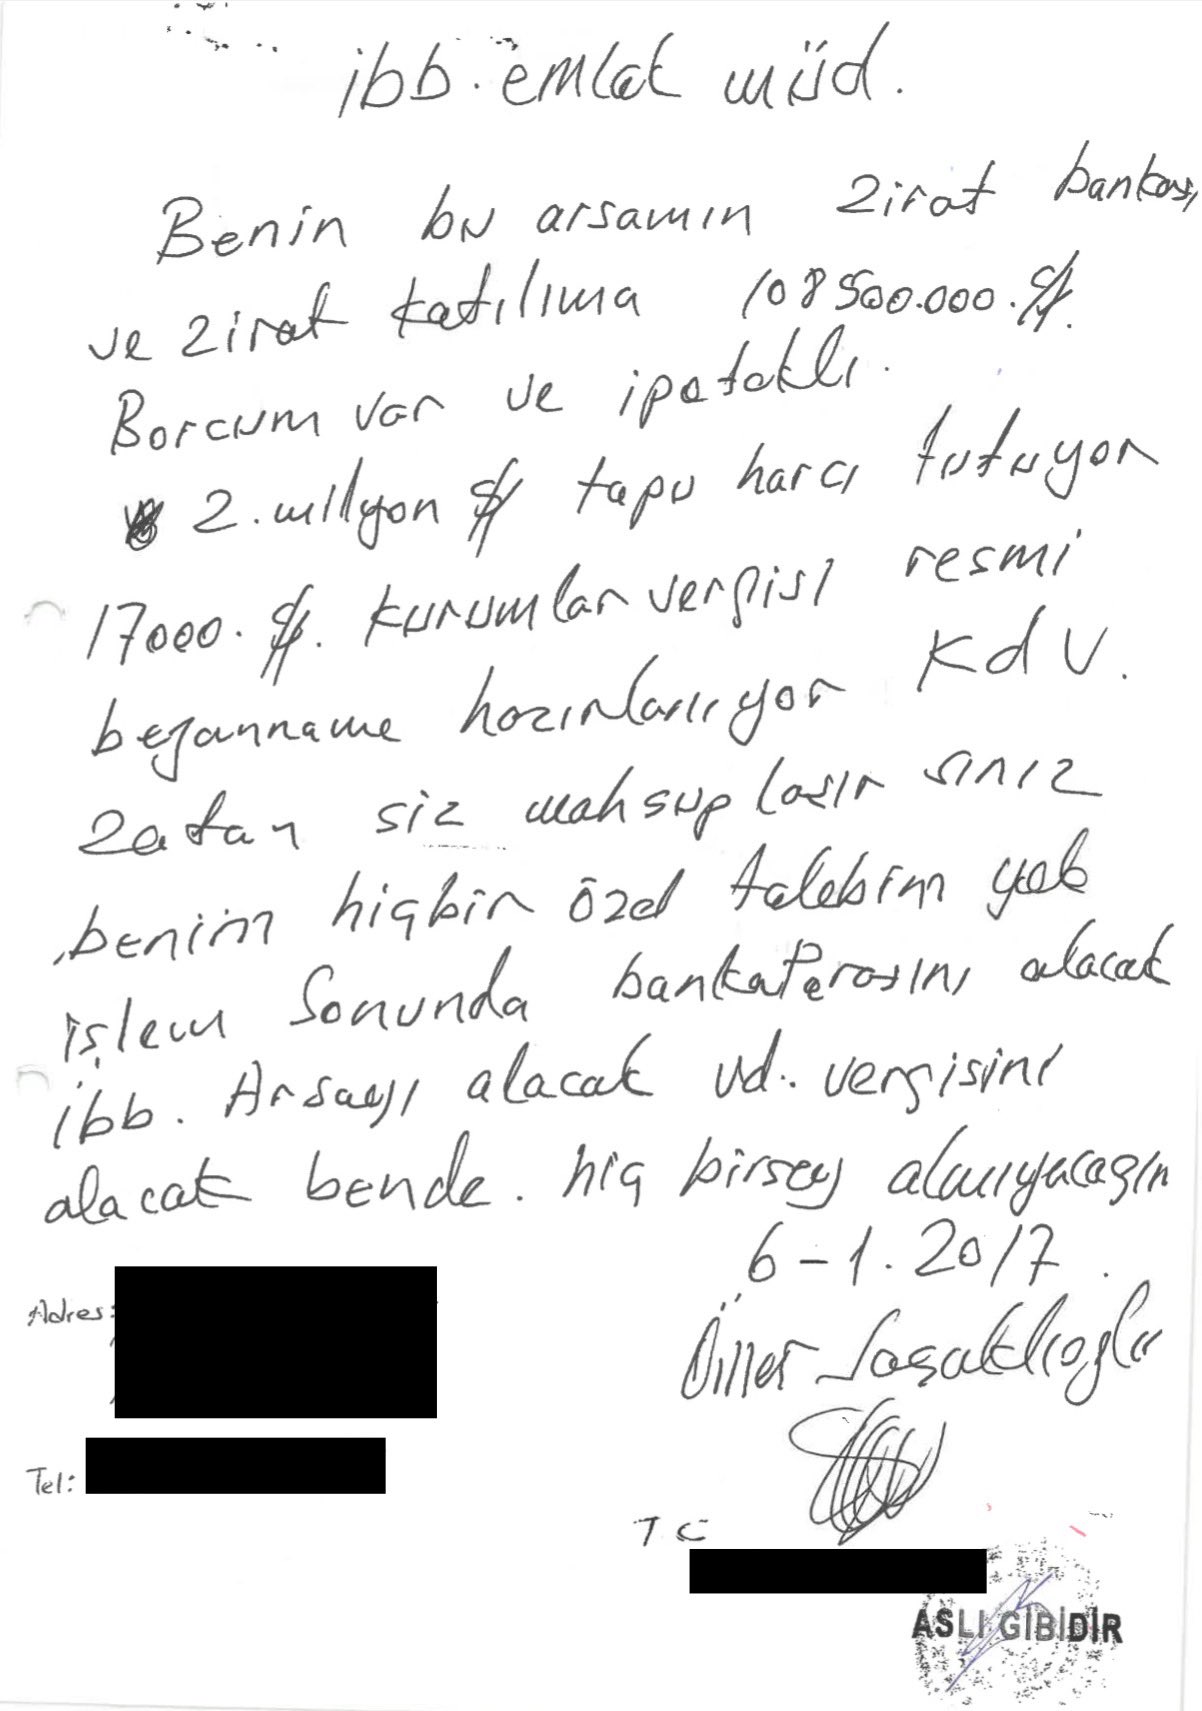 ibb. emlak müd.
Benin bu arsamın Zirat bankası
ve Zirat katılıma 108500.000.$.
Borcum var ve ipotaklı.
2. milyon $ tapu harcı tutuyor
17000. $. kurumlar vergisi resmi
beyanname hazırlanıyor Kdv.
Zatan siz mahsuplasır sınız
benim hiçbir özel talebim yok
işlem Sonunda banka Parasını alacak
ibb. Arsayı alacak vd. vergisini
alacak bende. hiç birsey almıyacağım
6-1.2017.
Adres:
Ömer Saçaklıoğlu
Tel:
TC
ASLI GİBİDİR